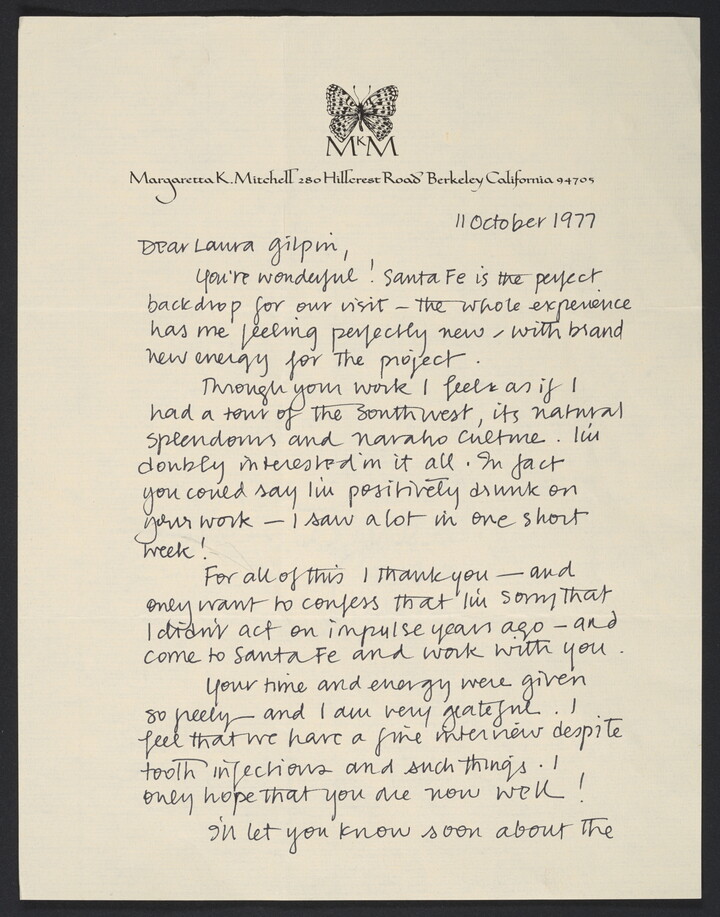 MKM
Margaretta K. Mitchell 280 Hillcrest Road Berkeley California 94705
11 October 1977
Dear Laura Gilpin,
You're wonderful! Santa Fe is the perfect
backdrop for our visit – the whole experience
has me feeling perfectly new – with brand
new energy for the project.
Through your work I feel as if I
had a tour of the Southwest, its natural
splendours and navaho culture. I'm
doubly interested in it all. In fact
you could say I'm positively drunk on
your work – I saw a lot in one short
week!
For all of this I thank you – and
only want to confess that I'm sorry that
I didn't act on impulse years ago – and
come to Santa Fe and work with you.
Your time and energy were given
so freely – and I am very grateful. I
feel that we have a fine interview despite
tooth infections and such things. I
only hope that you are now well!
I'll let you know soon about the